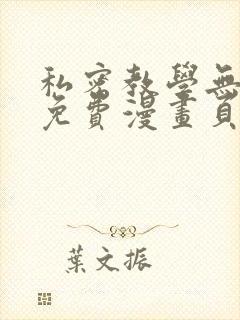 私密教學無
免費漫畫頁
葉文振